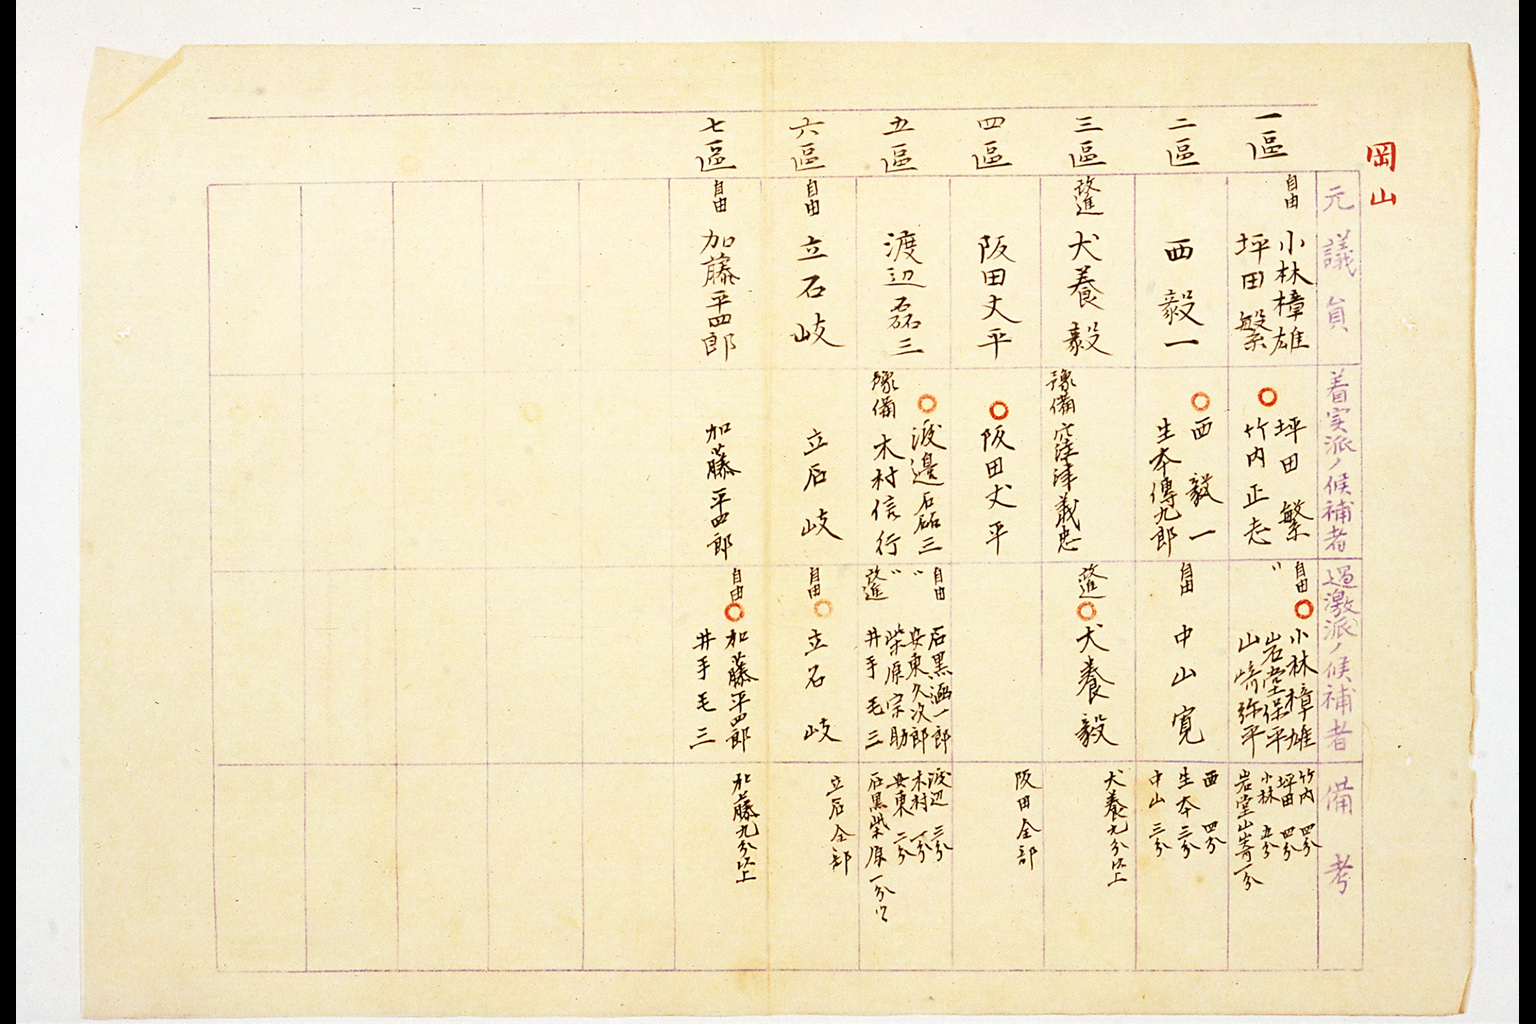 岡山
元議員
着実派ノ候補者
過激派ノ候補者
備考
一區
自由
小林樟雄
坪田繁
坪田繁
竹内正志
自由
小林樟雄
〃
岩堂保平
山崎弥平
竹内 四分
坪田 四分
小林 五分
岩堂山崎一分
二區
西毅一
西毅一
生本傳九郎
自由
中山寛
西 四分
生本 三分
中山 三分
三區
改進
犬養毅
豫備
窪津義忠
改進
犬養毅
犬養九分以上
四區
阪田丈平
阪田丈平
阪田全部
五區
渡辺磊三
渡邊磊三
豫備
木村信行
自由
石黒涵一郎
〃
安東久次郎
〃
柴原宗助
改進
井手毛三
渡辺 三分
木村 一分
安東 二分
石黒柴原一分ツ
六區
自由
立石岐
立石岐
自由
立石岐
立石全部
七區
自由
加藤平四郎
加藤平四郎
自由
加藤平四郎
井手毛三
加藤九分以上